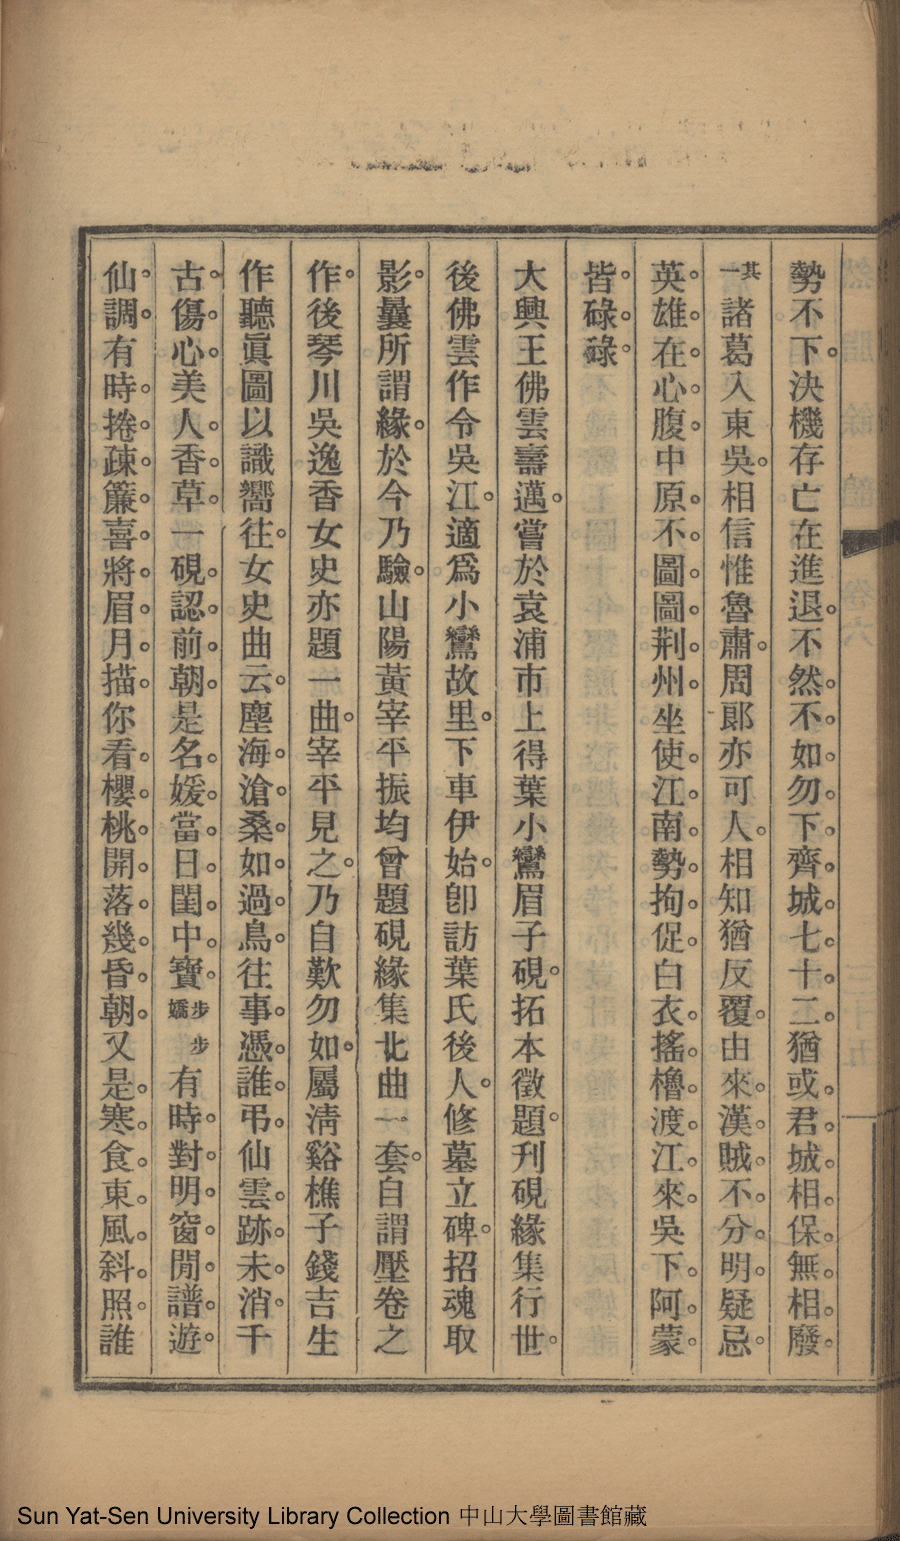 勢不下決機存亡在進退不然不如勿下齊城七十二猶或君城相保無相廢
其一諸葛入東吳相信惟魯肅周郞亦可人相知猶反覆由來漢賊不分明疑忌
英雄在心腹中原不圖圖荆州坐使江南勢拘促白衣搖櫓渡江來吳下阿蒙
皆碌碌
大興王佛雲壽邁嘗於袁浦市上得葉小鸞眉子硯拓本徵題刊硯緣集行世
後佛雲作令吳江適爲小鸞故里下車伊始卽訪葉氏後人修墓立碑招魂取
影曩所謂緣於今乃驗山陽黃宰平振均曾題硯緣集北曲一套自謂壓卷之
作後琴川吳逸香女史亦題一曲宰平見之乃自歎勿如屬淸谿樵子錢吉生
作聽眞圖以識嚮往女史曲云塵海滄桑如過鳥往事憑誰弔仙雲跡未消千
古傷心美人香草一硯認前朝是名媛當日閨中寶步步嬌有時對明窗閒譜遊
仙調有時捲疎簾喜將眉月描你看櫻桃開落幾昏朝又是寒食東風斜照誰
Sun Yat-Sen University Library Collection 中山大學圖書館藏